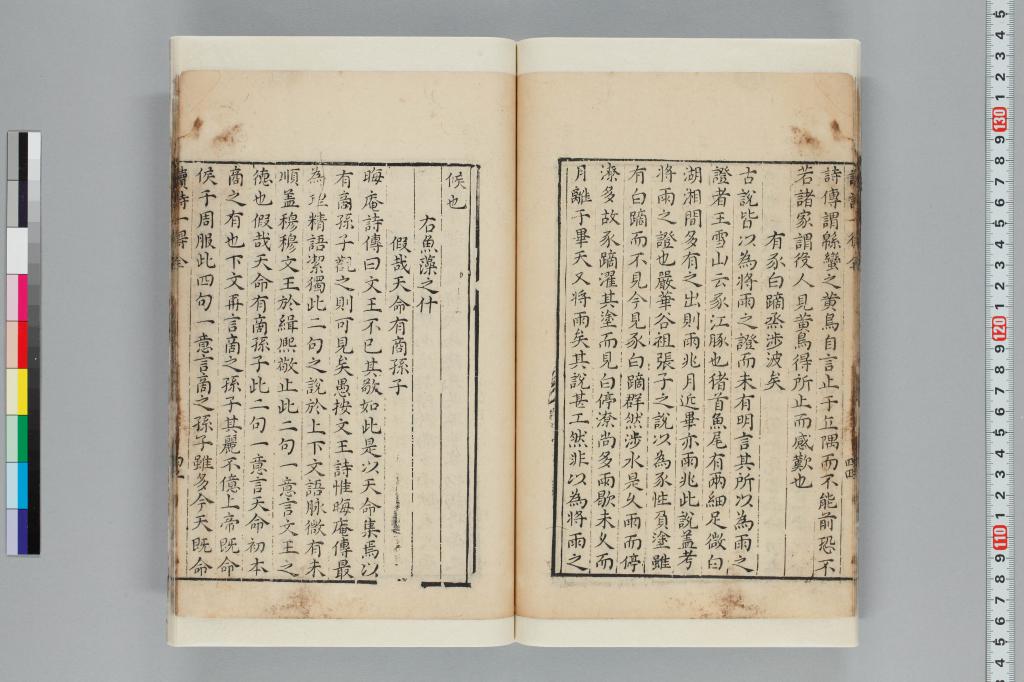 詩傳謂緜蠻之黄鳥自言止于丘隅而不能前恐不
若諸家謂後人見黄鳥得所止而感歎也
有豕白蹢烝涉波矣
古說皆以為將雨之證而未有明言其所以為雨之
證者王雪山云豕江豚也猪首魚尾有兩細足微白
湖湘間多有之出則雨兆月近畢亦雨兆此說蓋考
將雨之證也嚴華谷祖張子之說以為豕性負塗雖
有白蹢而不見今見豕白蹢群然涉水是久雨而停
潦多故豕蹢濯其塗而見白停潦尚多雨歇未久而
月離于畢天又將雨矣其說甚工然非以為將雨之
侯也
右魚藻之什
假哉天命有商孫子
晦庵詩傳曰文王不已其敬如此是以天命集焉以
有商孫子觀之則可見矣愚按文王詩惟晦庵傳最
為理精語潔獨此二句之說於上下文語脉微有未
順蓋穆穆文王於緝熙敬止此二句一意言文王之
德也假哉天命有商孫子此二句一意言天命初本
商之有也下文再言商之孫子其麗不億上帝既命
侯于周服此四句一意言商之孫子雖多今天既命
讀詩一得全